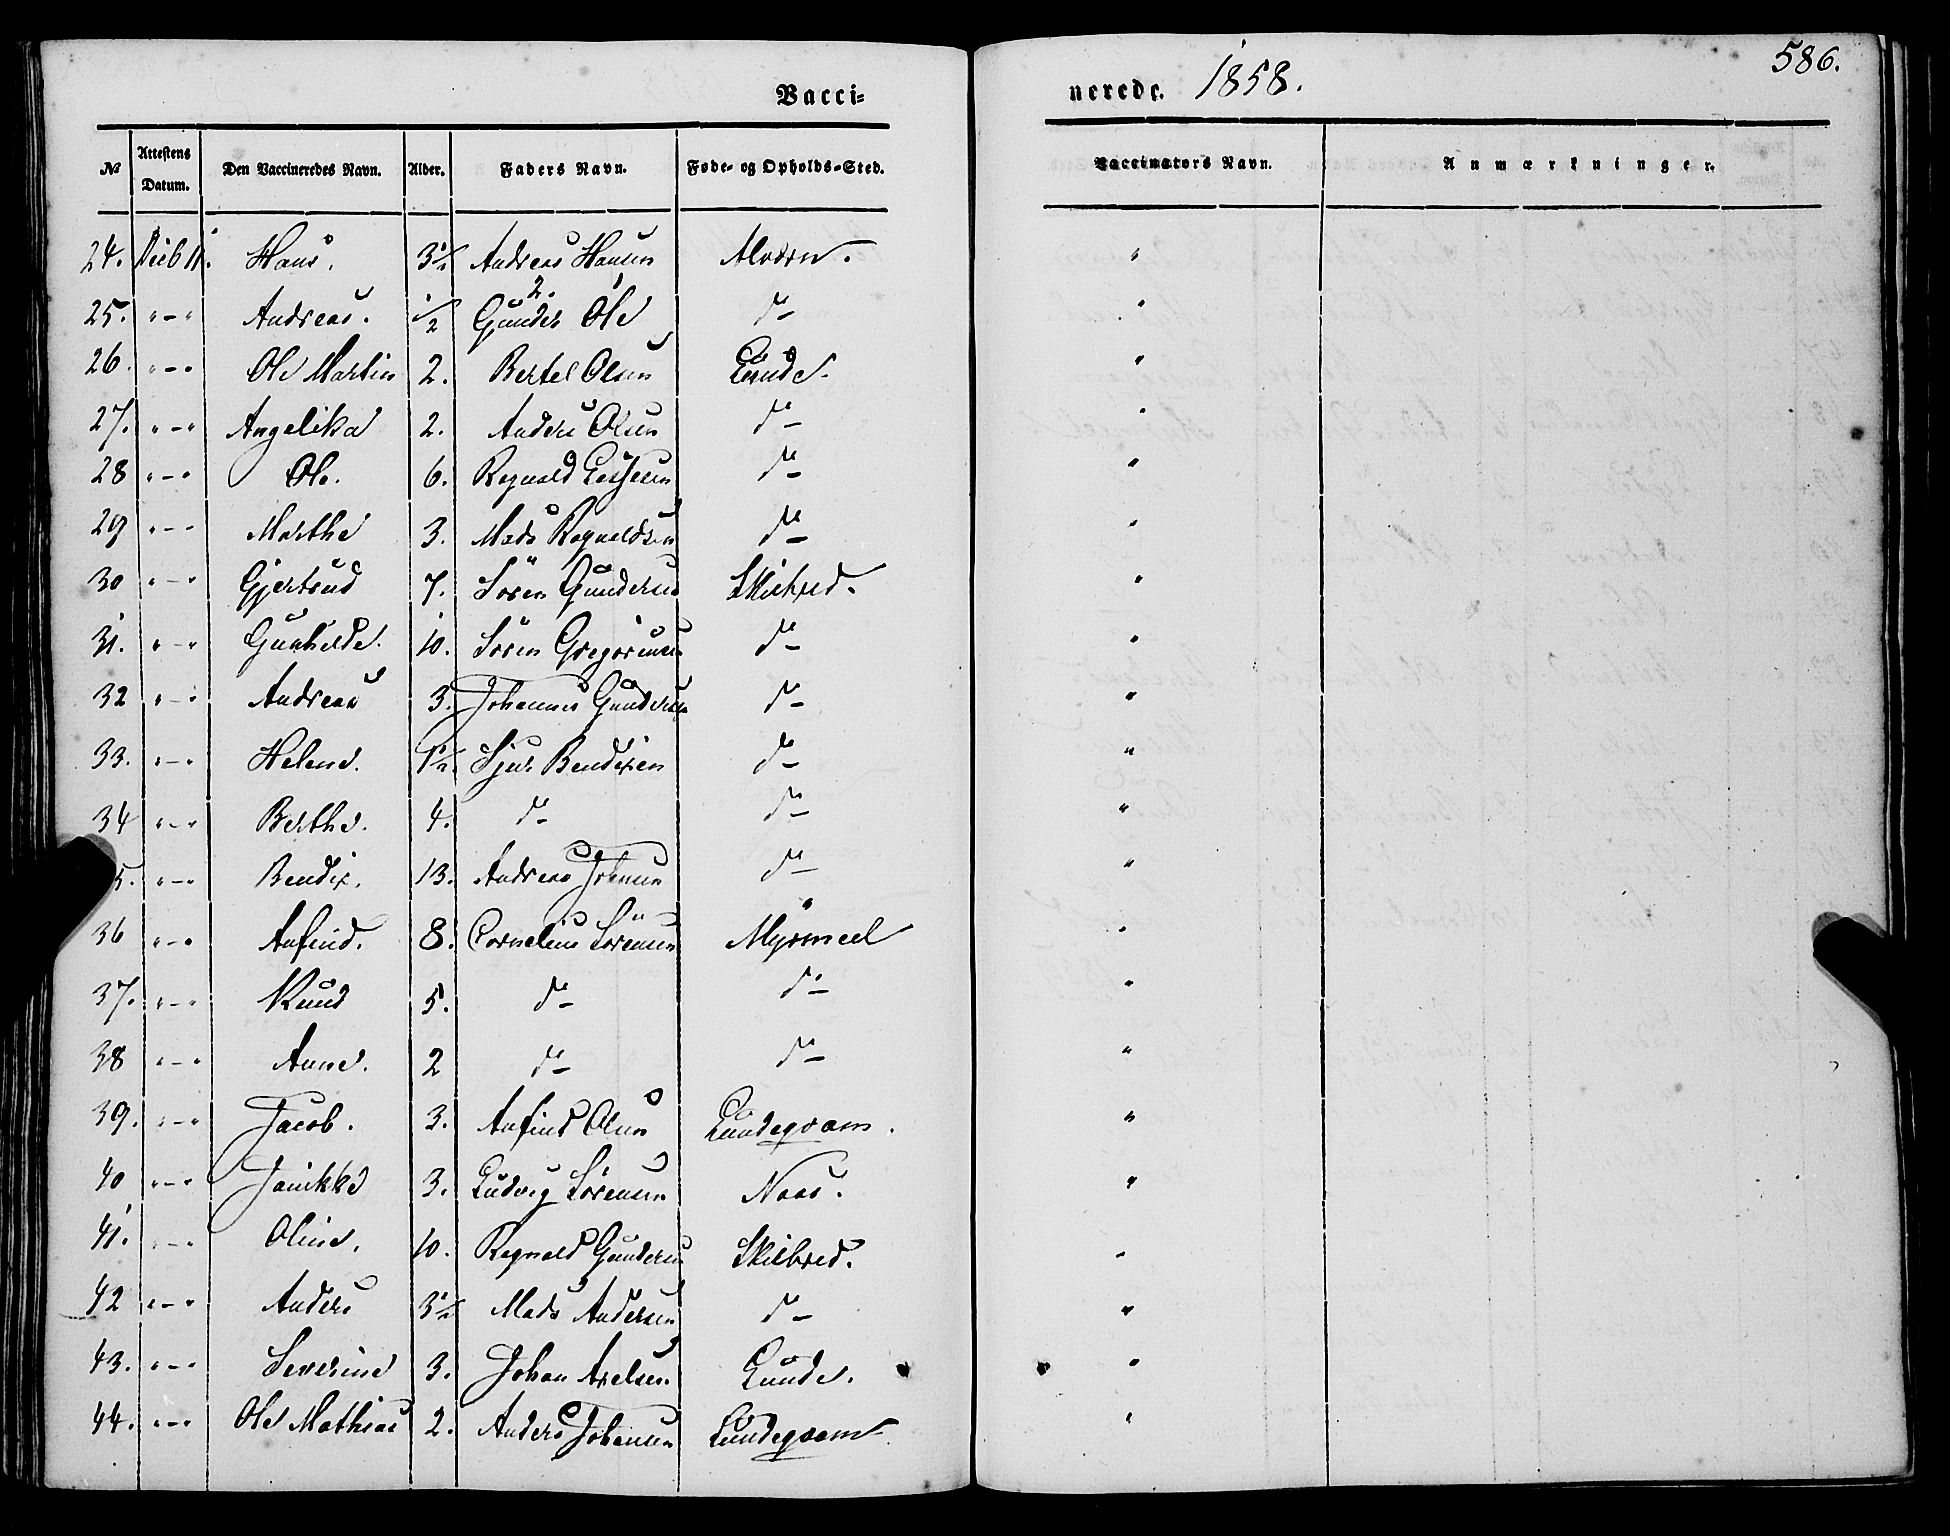 586.
Vacci= nerede. 1858.
№ Attestens Datum. Den Vaccineredes Navn. Alder. Faders Navn. Føde- og Opholds-Sted. Vaccinators Navn. Anmærkninger.
24. 11. Hans. 3½ Andreas Hansen "
25. " - " Andreas. ½ Gunder Ole d- "
2.
26. " - " Ole Martin 2. Bertel Olsen Lunde. "
27. " - " Angelika 2. Anders Olsen d- "
28 " - " Ole. 6. Regnald d- "
29 " - " Marthe 3. Mads Regnaldsen d- "
30 " - " Gjertrud 7. Sören Gundersen Skilbred. "
31. " - " Gunhilde. 10. Sören Gregoriusen d- "
32 " - " Andreas 3. Johannes Gundersen d- "
33. " - " Helene. 1½. Sjur Bendixen d- "
34 " - " Berthe. 4. d- d- "
5. " - " Bendix. 13. Andreas Johnsen d- "
36 " - " Anfind. 8. Cornelius Sörensen Myrmeel "
37. " - " Knud 5. d- d- "
38 " - " Anne. 2 d- d- "
39. " - " Jacob. 3. Anfind Olsen Lundeqvam. "
40 " - " Janikke 3. Ludvig Sørensen Naas. "
41. " - " Oline. 10. Regnald Gundersen Skilbred. "
42 " - " Anders 3½ Mads Andersen d- "
43. " - " Severine 3. Johan Axelsen. Lunde. "
44. " - " Ole Mathias 2. Anders Johansen Lundeqvam "